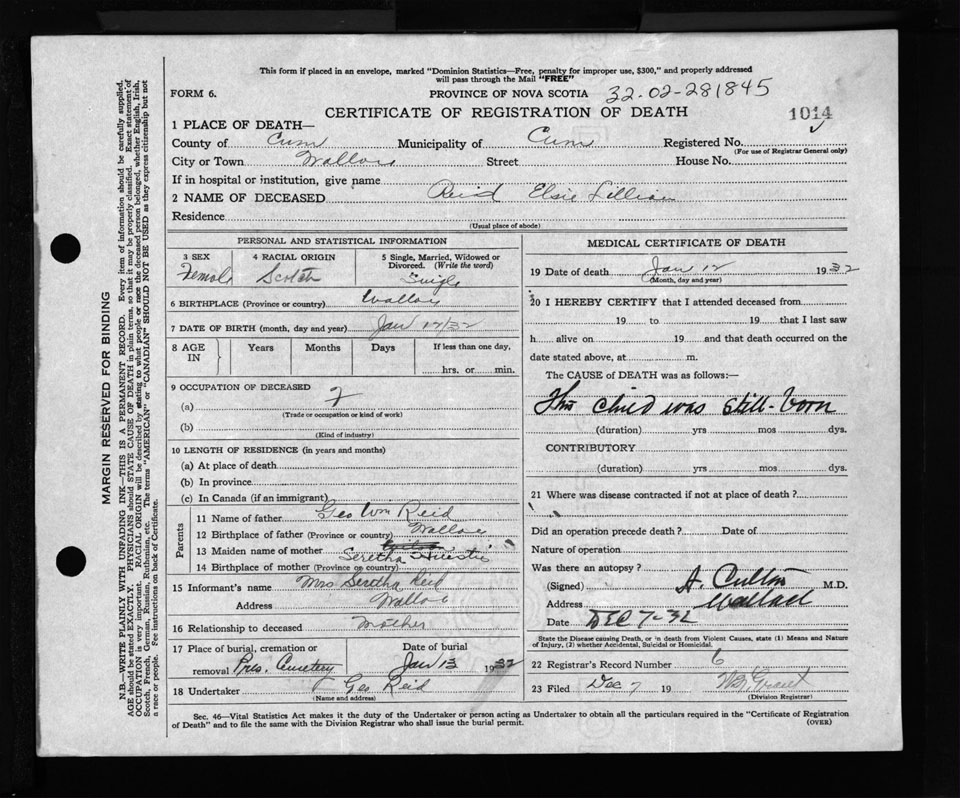 This form if placed in an envelope, marked "Dominion Statistics—Free, penalty for improper use, $300," and properly addressed
will pass through the Mail "FREE"
FORM 6.
PROVINCE OF NOVA SCOTIA 32-02-281845
CERTIFICATE OF REGISTRATION OF DEATH
1014
1 PLACE OF DEATH—
County of Cum Municipality of Cum Registered No.
(For use of Registrar General only)
City or Town Wallace Street House No.
If in hospital or institution, give name
2 NAME OF DECEASED Reid Elsie Lillian
Residence
(Usual place of abode)
PERSONAL AND STATISTICAL INFORMATION
3 SEX
Female
4 RACIAL ORIGIN
Scotch
5 Single, Married, Widowed or
Divorced. (Write the word)
Single
6 BIRTHPLACE (Province or country) Wallace
7 DATE OF BIRTH (month, day and year) Jan 12/32
8 AGE
IN
Years
Months
Days
If less than one day,
hrs. or min.
9 OCCUPATION OF DECEASED
(a)
(Trade or occupation or kind of work)
(b)
(Kind of industry)
10 LENGTH OF RESIDENCE (in years and months)
(a) At place of death
(b) In province
(c) In Canada (if an immigrant)
Parents
11 Name of father Geo Wm Reid
12 Birthplace of father (Province or country) Wallace
13 Maiden name of mother Seretha
14 Birthplace of mother (Province or country)
15 Informant's name Mrs Seretha Reid
Address Wallace
16 Relationship to deceased Mother
17 Place of burial, cremation or
removal Pres. Cemetery
Date of burial
Jan 13 1932
18 Undertaker Geo Reid
(Name and address)
MEDICAL CERTIFICATE OF DEATH
19 Date of death Jan 12 1932
(Month, day and year)
20 I HEREBY CERTIFY that I attended deceased from
19 to 19 that I last saw
h alive on 19 and that death occurred on the
date stated above, at m.
The CAUSE of DEATH was as follows:—
This child was still-born
(duration) yrs mos dys.
CONTRIBUTORY
(duration) yrs mos dys.
21 Where was disease contracted if not at place of death?
Did an operation precede death? Date of
Nature of operation
Was there an autopsy?
(Signed) M.D.
Address Wallace
Date DEC 7-32
State the Disease causing Death, or in death from Violent Causes, state (1) Means and Nature
of Injury, (2) whether Accidental, Suicidal or Homicidal.
22 Registrar's Record Number 6
23 Filed Dec 7 19 Grant
(Division Registrar)
Sec. 46—Vital Statistics Act makes it the duty of the Undertaker or person acting as Undertaker to obtain all the particulars required in the "Certificate of Registration
of Death" and to file the same with the Division Registrar who shall issue the burial permit.
(OVER)
MARGIN RESERVED FOR BINDING
N.B.—WRITE PLAINLY WITH UNFADING INK—THIS IS A PERMANENT RECORD. Every item of information should be carefully supplied.
AGE should be stated EXACTLY. PHYSICIANS should STATE CAUSE OF DEATH in plain terms, so that it may be properly classified. Exact statement of
OCCUPATION is very important. RACIAL ORIGIN will be described by stating to what people or race the deceased person belonged, whether English, Irish,
Scotch, French, German, Russian, Ruthenian, etc. The terms "AMERICAN" or "CANADIAN" SHOULD NOT BE USED as they express citizenship but not
a race or people. See instructions on back of Certificate.